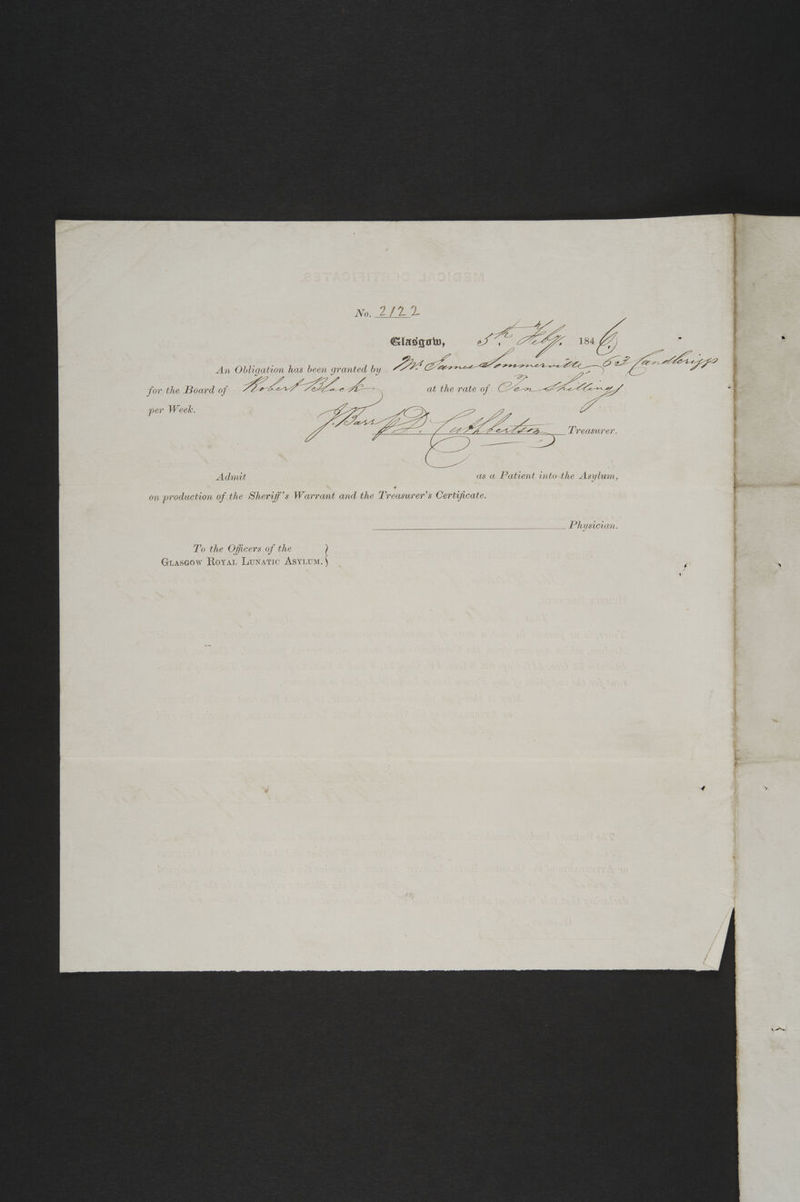 No. 2122
Glasgow, 5th Feby. 1846.
An Obligation has been granted by Mr James Sommerville 63 Candleriggs
for the Board of Robert Black at the rate of Ten Shillings
per Week.
J. Barr D. Cuthbertson Treasurer.
Admit as a Patient into the Asylum,
on production of the Sheriff's Warrant and the Treasurer's Certificate.
Physician.
To the Officers of the
Glasgow Royal Lunatic Asylum.